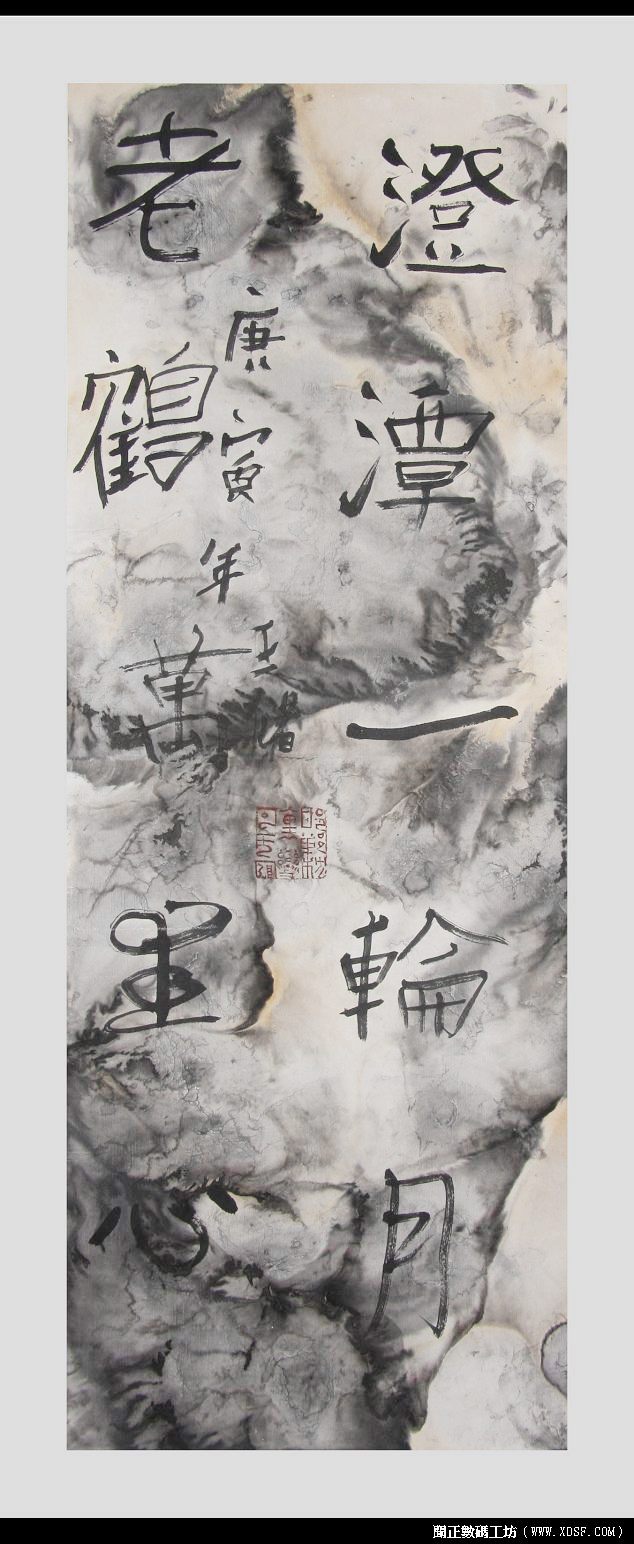 澄潭一輪月
老鶴萬里心
庚寅年
聞正數碼工坊（WWW.XDSF.COM）